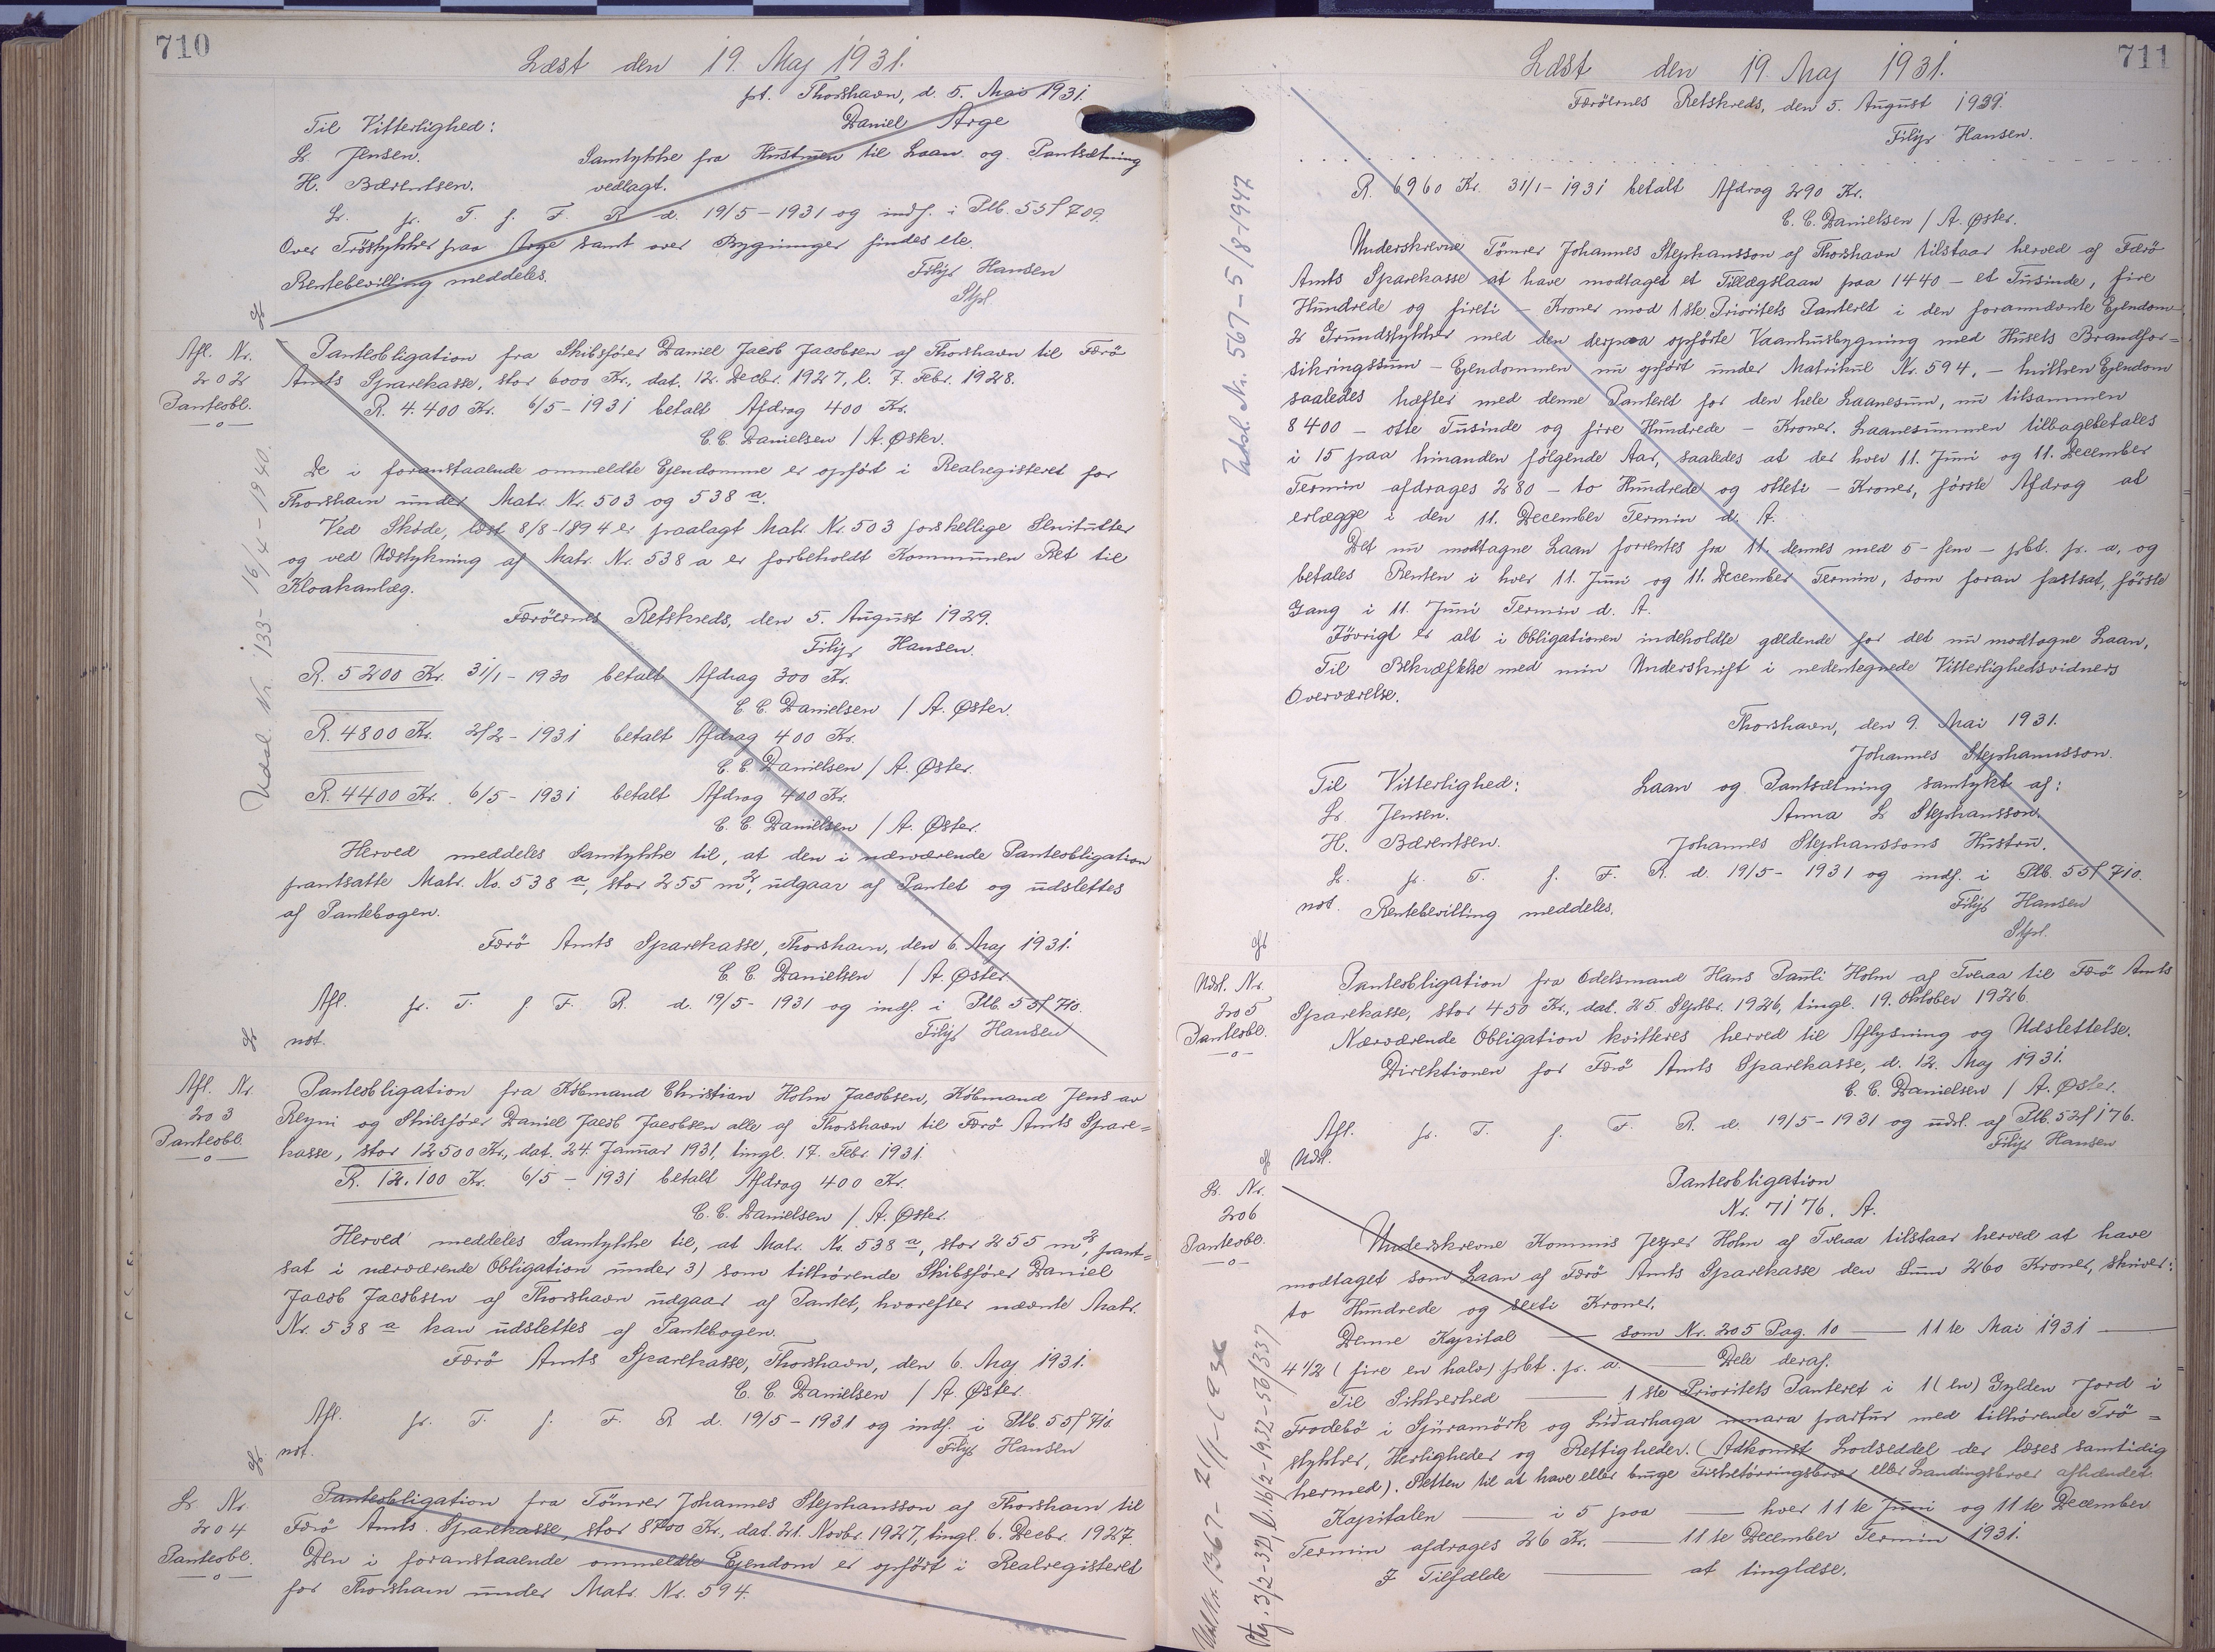 710
Læst den 19. Maj 1931.
pt. Thorshavn, d. 5. Mai 1931.
Til Vitterlighed: Daniel Arge
L. Jensen. Samtykke fra Hustruen til Laan og Pantsætning
H. Bærentsen. vedlagt.
L. p. T. f. F. R. d. 19/5-1931 og indf. i Ptb. 55f709.
Over Tröstykker paa Arge samt over Bygninger findes ele.
Rentebevilling meddeles. Filip Hansen
Stpl.
Afl. Nr.
202
Panteobl.
Panteobligation fra Skibsfører Daniel Jacob Jacobsen af Thorshavn til Færö
Amts Sparekasse, stor 6000 Kr., dat. 12. Decbr. 1927, l. 7. Febr. 1928.
R. 4.400 Kr. 6/5-1931 betalt Afdrag 400 Kr.
C. C. Danielsen / A. Øster.
De i foranstaaende ommeldte Ejendomme er opført i Realregisteret for
Thorshavn under Matr. Nr. 503 og 538 a.
Ved Skøde, læst 8/8-1894 er paalagt Matr. Nr. 503 forskellige Servitutter
og ved Udstykning af Matr. Nr. 538 a er forbeholdt Kommunen Ret til
Kloakanlæg.
Færöernes Retskreds, den 5. August 1929.
Filip Hansen.
R. 5200 Kr. 31/1-1930 betalt Afdrag 300 Kr.
C. C. Danielsen / A. Øster.
R. 4800 Kr. 2/2-1931 betalt Afdrag 400 Kr.
C. C. Danielsen / A. Øster.
R. 4400 Kr. 6/5-1931 betalt Afdrag 400 Kr.
C. C. Danielsen / A. Øster.
Herved meddeles Samtykke til, at den i nærværende Panteobligation
pantsatte Matr. No. 538 a, stor 255 m², udgaar af Pantet og udslettes
af Pantebogen.
Færö Amts Sparekasse, Thorshavn, den 6. Maj 1931.
C. C. Danielsen / A. Øster
Afl. p. T. f. F. R. d. 19/5-1931 og indf. i Ptb. 55f710.
not. Filip Hansen
Udsl. Nr. 133-16/4-1940.
Afl. Nr.
203
Panteobl.
Panteobligation fra Købmand Christian Holm Jacobsen, Købmand Jens av
Reyni og Skibsfører Daniel Jacob Jacobsen alle af Thorshavn til Færö Amts Spare=
kasse, stor 12500 Kr., dat. 24. Januar 1931, tingl. 17. Febr. 1931.
R. 12.100 Kr. 6/5-1931 betalt Afdrag 400 Kr.
C. C. Danielsen / A. Øster.
Herved meddeles Samtykke til, at Matr. No. 538 a, stor 255 m², pant=
sat i nærværende Obligation under 3) som tilhørende Skibsfører Daniel
Jacob Jacobsen af Thorshavn udgaar af Pantet, hvorefter nævnte Matr.
Nr. 538 a kan udslettes af Pantebogen.
Færö Amts Sparekasse, Thorshavn, den 6. Maj 1931.
C. C. Danielsen / A. Øster.
Afl. p. T. f. F. R. d. 19/5-1931 og indf. i Ptb. 55f710.
not. Filip Hansen
L. Nr.
204
Panteobl.
Panteobligation fra Tömrer Johannes Stephansson af Thorshavn til
Færö Amts Sparekasse, stor 8700 Kr., dat. 21. Novbr. 1927, tingl. 6. Decbr. 1927.
Den i foranstaaende ommeldte Ejendom er opført i Realregisteret
for Thorshavn under Matr. Nr. 594.
711
Læst den 19. Maj 1931.
Færöernes Retskreds, den 5. August 1929.
Filip Hansen.
R. 6960 Kr. 31/1-1931 betalt Afdrag 290 Kr.
C. C. Danielsen / A. Øster.
Underskrevne Tömrer Johannes Stephansson af Thorshavn tilstaar herved af Færö
Amts Sparekasse at have modtaget et Tillægslaan paa 1440 - et Tusinde, fire
Hundrede og fireti - Kroner mod 1ste Prioritets Panteret i den forannævnte Ejendom -
2 Grundstykker med den derpaa opførte Vaanhusbygning med Husets Brandfor=
sikringssum - Ejendommen nu opført under Matrikul Nr. 594, - hvilken Ejendom
saaledes hæfter med denne Panteret for den hele Laanesum, nu tilsammen
8400 - otte Tusinde og fire Hundrede - Kroner. Laanesummen tilbagebetales
i 15 paa hinanden følgende Aar, saaledes at der hver 11. Juni og 11. December
Termin afdrages 280 - to Hundrede og otteti - Kroner, første Afdrag at
erlægge i den 11. December Termin d. A.
Det nu modtagne Laan forrentes fra 11. dennes med 5 - fem - pCt. p. a. og
betales Renten i hver 11. Juni og 11. December Termin, som foran fastsat, første
Gang i 11. Juni Termin d. A.
Iövrigt er alt i Obligationen indeholdte gældende for det nu modtagne Laan,
Til Bekræftelse med min Underskrift i nedentegnede Vitterlighedsvidners
Overværelse.
Thorshavn, den 9. Mai 1931.
Johannes Stephansson.
Til Vitterlighed: Laan og Pantsætning samtykt af:
L. Jensen. Anna L Stephansson.
H. Bærentsen. Johannes Stephanssons Hustru.
L. p. T. f. F. R. d. 19/5-1931 og indf. i Ptb. 55f710.
not. Rentebevilling meddeles. Filip Hansen
Stpl.
Udsl. Nr. 567-5/8-1947
Udsl. Nr.
205
Panteobl.
Panteobligation fra Odelsmand Hans Pauli Holm af Tveraa til Færö Amts
Sparekasse, stor 450 Kr., dat. 25 Septbr. 1926, tingl. 19. Oktober 1926.
Nærværende Obligation kvitteres herved til Aflysning og Udslettelse.
Direktionen for Færö Amts Sparekasse, d. 12. Maj 1931.
C. C. Danielsen / A. Øster.
Afl. p. T. f. F. R. d. 19/5-1931 og udsl. af Ptb. 52f176.
Udsl. Filip Hansen
L. Nr.
206
Panteobl.
Panteobligation
Nr. 7176. A.
Underskrevne Kommis Jesper Holm af Tveraa tilstaar herved at have
modtaget som Laan af Færö Amts Sparekasse den Sum 260 Kroner, skriver:
to Hundrede og sexti Kroner.
Denne Kapital — som Nr. 205 Pag. 10 — 11te Mai 1931 —
4 1/2 (fire en halv) pCt. p. a. — Dele deraf.
Til Sikkerhed — 1ste Prioritets Panteret i 1 (en) Gylden Jord i
Frodebö i Sjúramörk og Lúdarhaga nunara partur med tilhørende Trö=
stykker, Herligheder og Rettigheder. (Adkomst Lodseddel der læses samtidig
hermed). Retten til at have eller bruge Fisketörringsbroer eller Landingsbroer afhændet.
Kapitalen — i 5 paa — hver 11te Juni og 11te December
Termin afdrages 26 Kr. — 11te December Termin 1931.
I Tilfælde — at tinglæse.